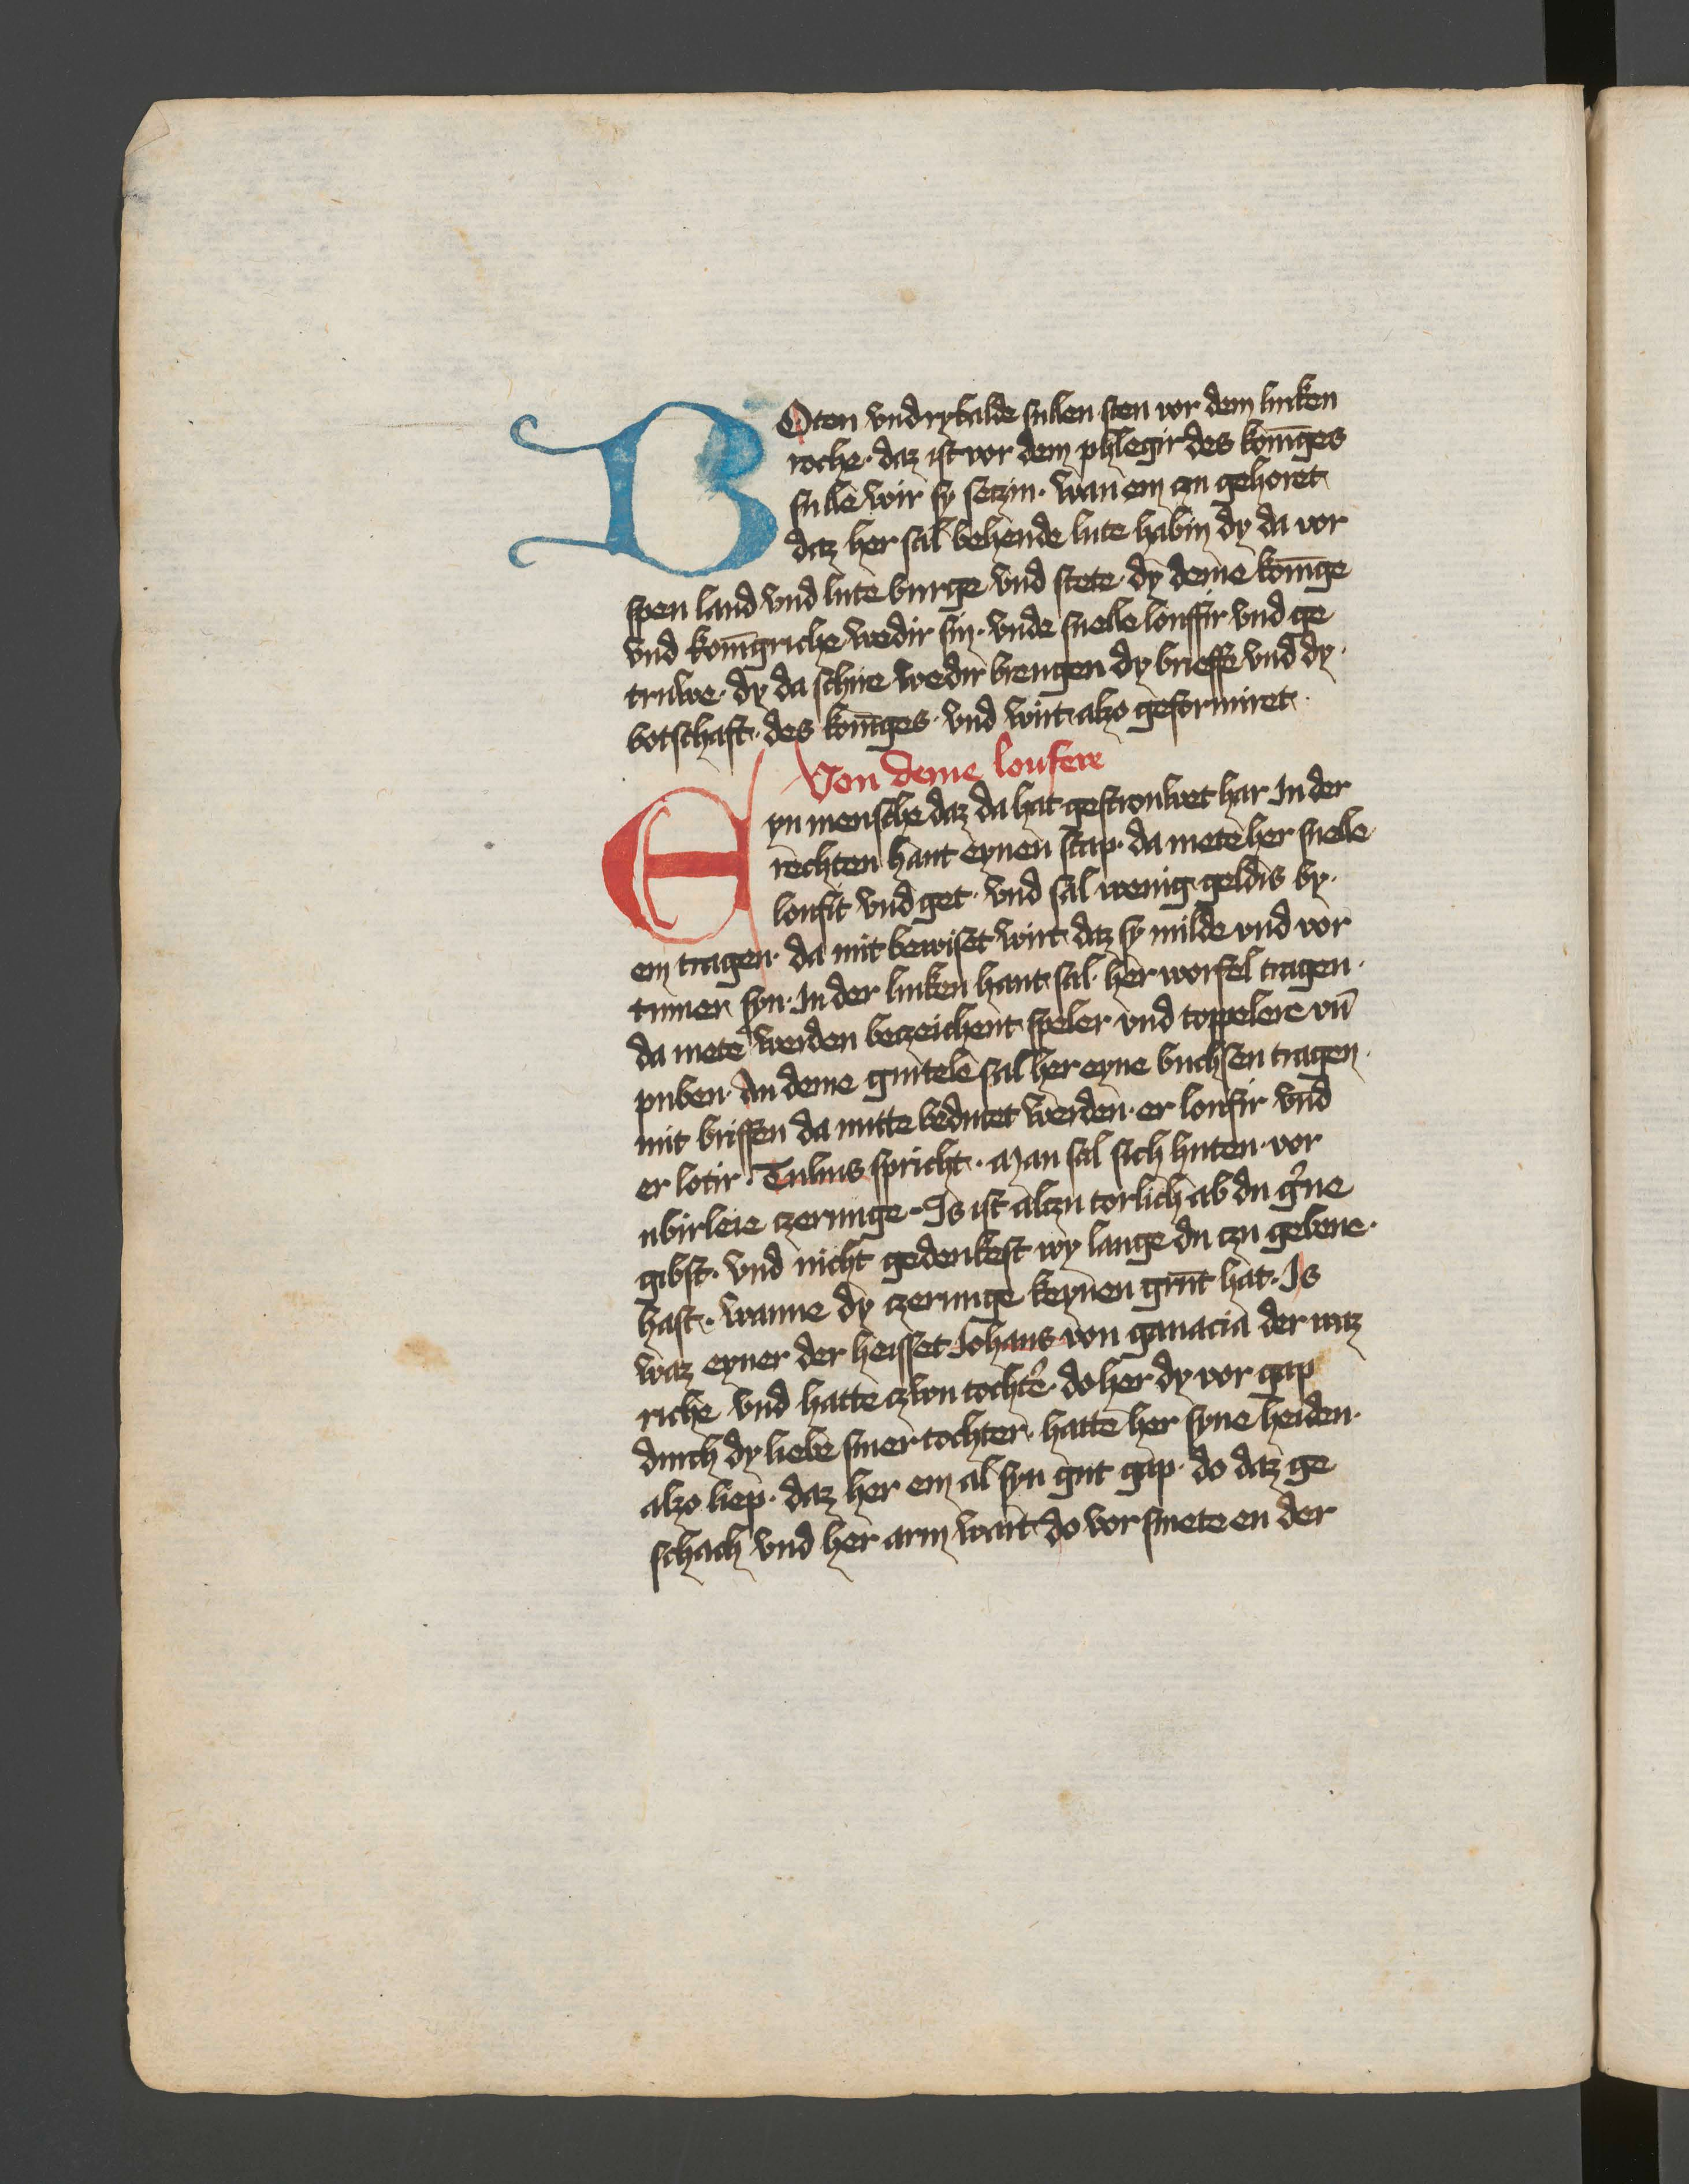 BOten vnd rybalde sullen sten vor dem linken
roche · daz ist vor dem phlegir des konīges
sullē wir sy setzin · wan em czu gehoret
daz her sal behende lute habin dy da vor
spen land vnd lute burge vnd stete · dy deme konīge
vnd konīgriche wedir sin · vnde snelle louffir vnd ge
truwe · dy da schire wedir brengen dy brieffe vnd dy
botschaft · des konīges · vnd wirt also geformiret ·
Von deme loufere
Eyn mensche daz da hat gestrouwet har In der
rechten hant eynen stap · da mete her snelle
loufit vnd get · vnd sal wenig geldis by ·
em tragen · da mit bewiset wirt daz sy milde vnd vor
tuner syn · In der linken hant sal her worfel tragen ·
da mete werden beczeichent speler vnd toppelere vn̄
puben · An deme gurtele sal her eyne buchsen tragen ·
mit briffen da mitte bedutet werden · er loufir vnd
er lotir · Tulius spricht · Man sal sich huten · vor
ubirleie czerunge · Is ist alczu torlich ab du g'ne
gibst · vnd nicht gedenkest wy lange du czu gebene ·
hast · wanne dy czerunge keynen grūt hat · Is
waz eyner der heisset Johans von ganacia der waz
riche vnd hatte czwu tocht'e · do her dy vor gap
durch dy liebe siner tochter · hatte her syne heiden ·
also liep · daz her em al syn gut gap · do daz ge
schach vnd her arm wart do vor smete en der